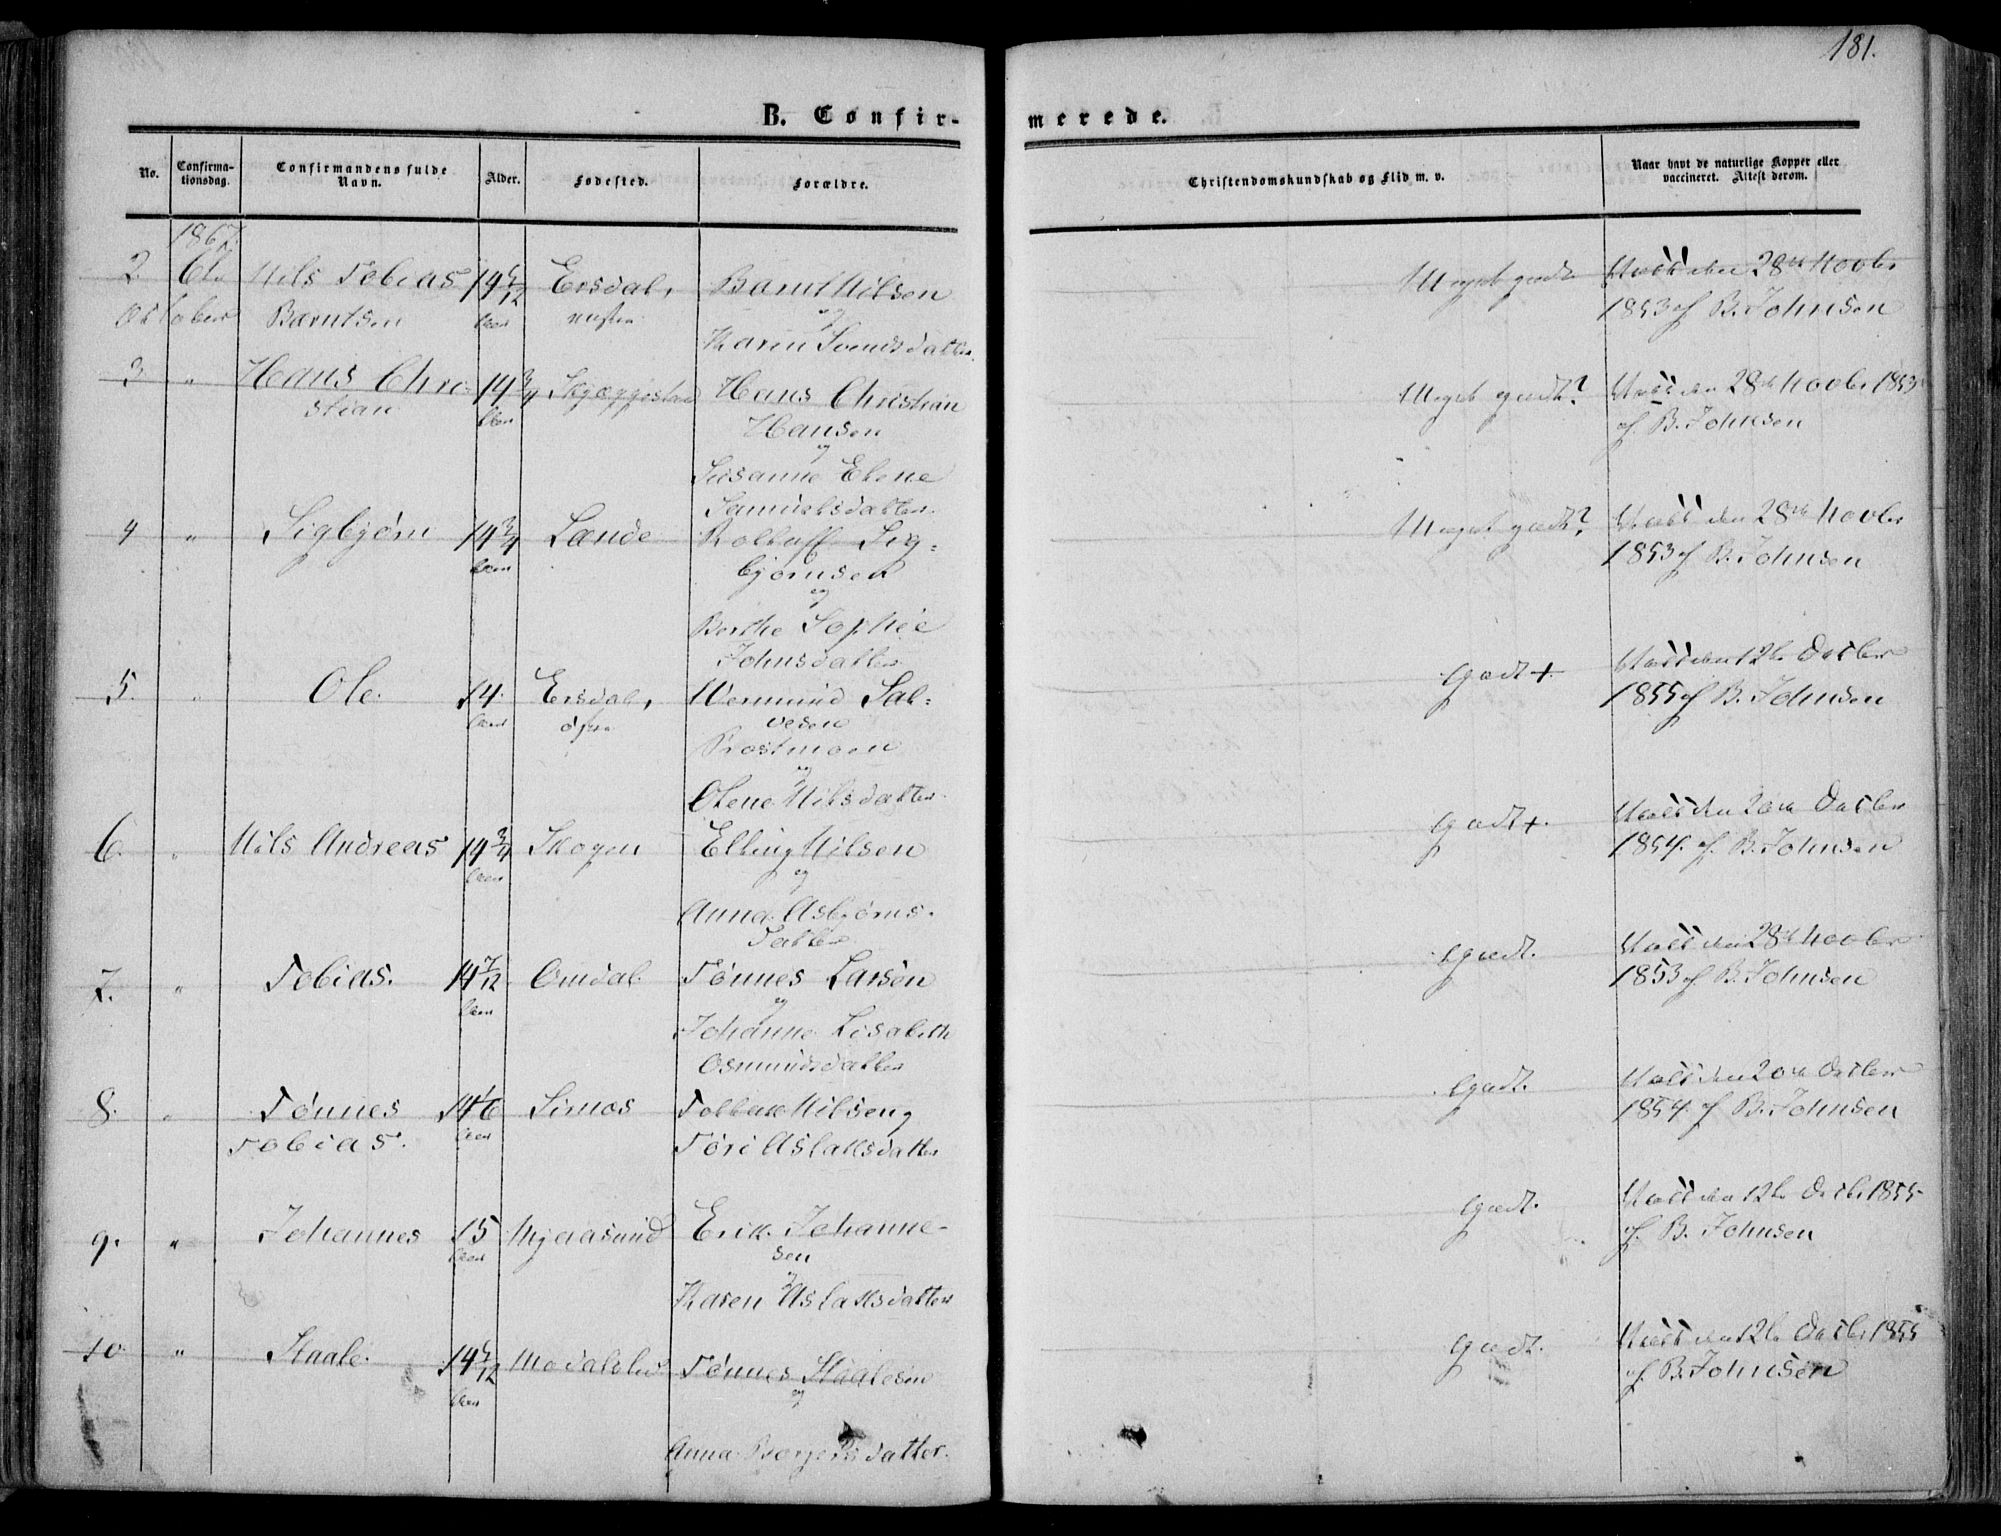 181.
B. Confir-
merede.
No.
Confirma-
tionsdag.
Confirmandens fulde
Navn.
Alder.
Fødested.
Forældre.
Christendomskundskab og Flid m. v.
Naar havt de naturlige Kopper eller
vaccineret. Attest derom.
1867.
2 6te Nils Tobias 14 5/12 Ersdal, Barnt Nilsen Meget godt Vacc den 28de Novbr
October Barntsen Aar og 1853 af B. Johnsen
Karen Svendsdatter
3 " Hans Chri- 14 3/4 Skjæggestad Hans Christian Meget godt? Vacc den 28de Novbr 1853
stian Aar Hansen af B. Johnsen
og
Susanne Elene
Samuelsdatter.
4 " Sigbjørn 14 3/4 Lande Sig- Meget godt? Vacc den 28de Novbr
Aar bjørnsen 1853 af B. Johnsen
og
Berthe Sophie
Johnsdatter
5. " Ole. 14. Ersdal, Wermund Sal- Godt+. Vacc den 12te Decbr
Aar øfre vesen 1855 af B. Johnsen
Rostmoen
og
Olene Nilsdatter
6. " Nils Andreas 14 3/4 Skogen Elling Nilsen Godt+. Vacc den 20de Decbr
Aar og 1854. af. B. Johnsen
Anna Asbjørns-
datter
7. " Tobias. 14 7/12 Omdal Tønnes Larsen Godt. Vacc den 28de Novbr
Aar og 1853 af B. Johnsen
Johanne Lisabeth
Osmundsdatter
8. " Tønnes 14 1/6 Sirnes Nilsen og Godt. Vacc den 20de Decbr
Tobias. Aar Tøri Aslaksdatter 1854. af B. Johnsen
9. " Johannes 15 Mjaasund Erik Johanne- Godt. Vacc den 12te Decbr 1855
Aar sen af B. Johnsen
og
Karen Aslaksdatter
10. " Staale. 14 5/12 Tønnes Staalesen Godt. Vacc den 12te Decbr 1855
Aar og af B. Johnsen
Anna Børjesdatter.